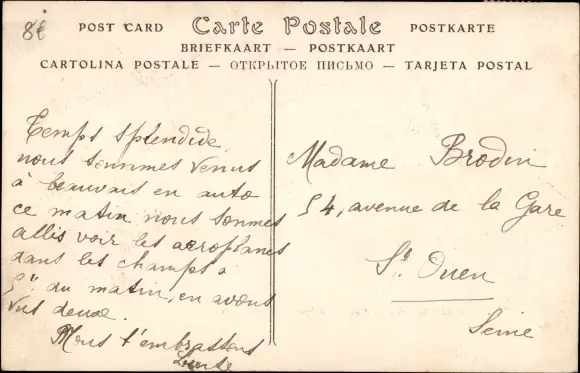 8€
POST CARD Carte Postale POSTKARTE
BRIEFKAART — POSTKAART
CARTOLINA POSTALE — ОТКРЫТОЕ ПИСЬМО — TARJETA POSTAL
Temps splendide
nous sommes venus
à beauvais en auto
ce matin nous sommes
allés voir les aeroplanes
dans les champs à
5h du matin, en avons
vus deux.
Nous t'embrassons
Madame Brodin
54, avenue de la Gare
St. Ouen
Seine